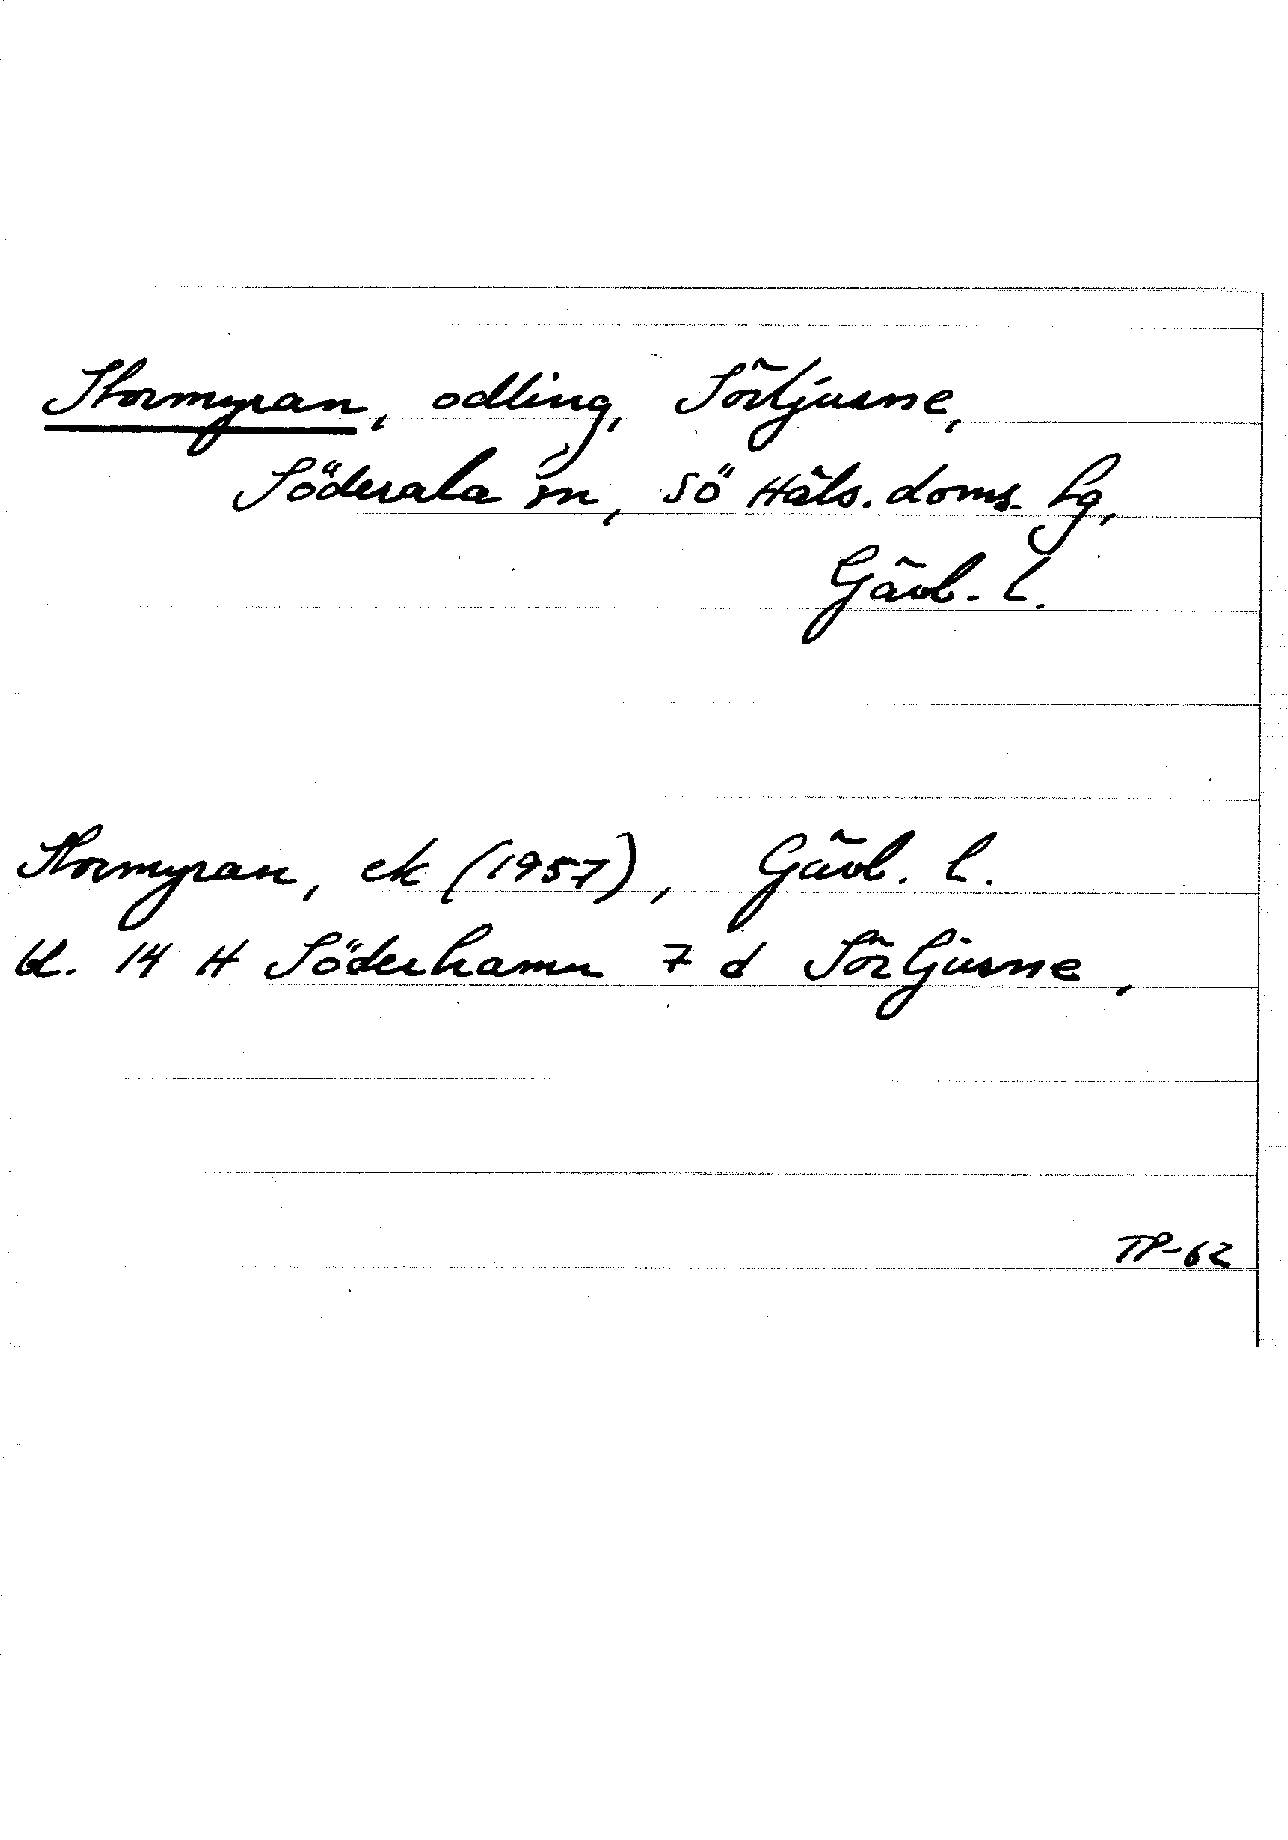 Stormyran, odling, Sörljusne,
Söderala sn, Sö Häls. doms. hg,
Gävl. l.
Stormyran, ek (1957), Gävl. l.
bl. 14 H Söderhamn 7 d Sörljusne,
TP-62